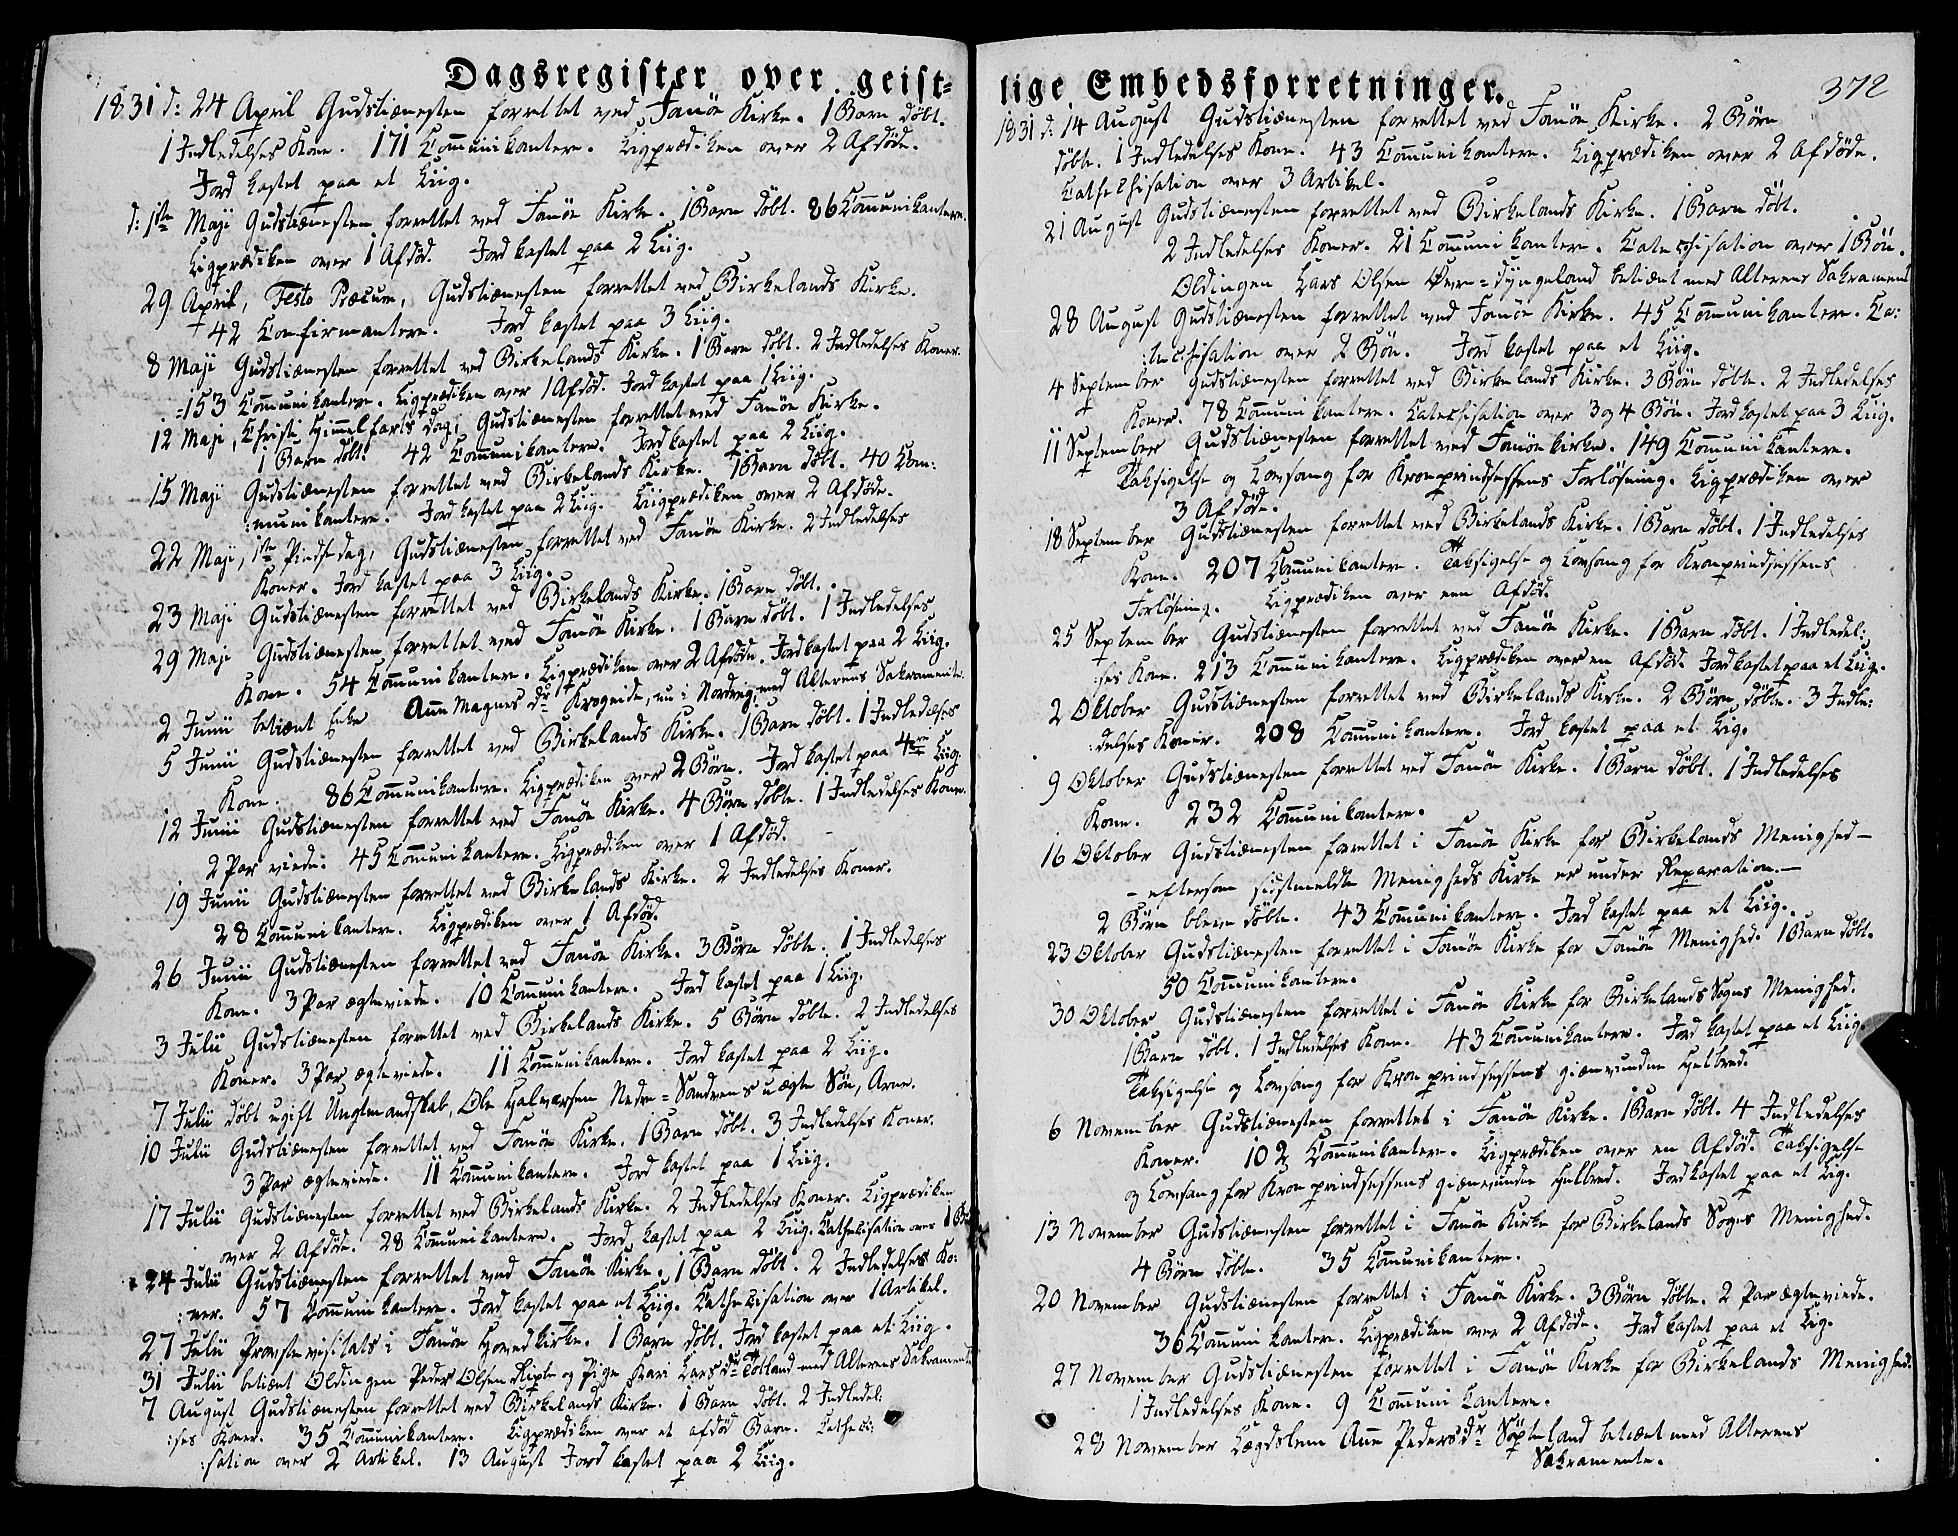 Dagsregister over geist=
1831 d: 24 April Gudstiænesten forrettet ved Fanöe Kirke. 1 Barn döbt.
1 Indledelses Kone. 171 Com̄unikantere. Ligprædiken over 2 Afdöde.
Jord kastet paa et Liig.
d: 1ste Maji Gudstiænesten forrettet ved Fanöe Kirke. 1 Barn döbt. 86 Com̄unikantere.
Ligprædiken over 1 Afdöd. Jord kastet paa 2 Liig.
29 April, Festo Præcum, Gudstiænesten forrettet ved Birkelands Kirke.
42 Confirmantere. Jord kastet paa 3 Liig.
8 Maji Gudstiænesten forrettet ved Birkelands Kirke. 1 Barn döbt. 2 Indledelses Koner.
=153 Com̄unikantere. Ligprædiken over 1 Afdöd. Jord kastet paa 1 Liig.
12 Maji, Christi Himmelfarts dag, Gudstiænesten forrettet ved Fanöe Kirke.
1 Barn döbt. 42 Com̄unikantere. Jord kastet paa 2 Liig.
15 Maji Gudstiænesten forrettet ved Birkelands Kirke. 1 Barn döbt. 40 Com:
:munikantere. Jord kastet paa 2 Liig. Liigprædiken over 2 Afdöde.
22 Maji, 1ste Pindsedag, Gudstiænesten forrettet ved Fanöe Kirke. 2 Indledelses
Koner. Jord kastet paa 3 Liig.
23 Maji Gudstiænesten forrettet ved Birkelands Kirke. 1 Barn döbt.
29 Maji Gudstiænesten forrettet ved Fanöe Kirke. 1 Barn döbt. 1 Indledelses
Kone. 54 Com̄unikantere. Ligprædiken over 2 Afdöde. Jord kastet paa 2 Liig.
2 Junii betient Enke Anne Magnes dr Krogeide, nu i Nordvig med Alterens Sakramente.
5 Junii Gudstiænesten forrettet ved Birkelands Kirke. 1 Barn döbt. 1 Indledelses
Kone. 86 Com̄unikantere. Ligprædiken over 2 Börn. Jord kastet paa 4re Liig.
12 Junii Gudstiænesten forrettet ved Fanöe Kirke. 4 Börn döbte. 1 Indledelses Kone.
2 Par viede. 45 Com̄unikantere. Ligprædiken over 1 Afdöd.
19 Junii Gudstiænesten forrettet ved Birkelands Kirke. 2 Indledelses Koner.
28 Com̄unikantere. Ligprædiken over 1 Afdöd.
26 Junii Gudstiænesten forrettet ved Fanöe Kirke. 3 Börn döbte. 1 Indledelses
Kone. 3 Par ægteviede. 10 Com̄unikantere. Jord kastet paa 1 Liig.
3 Julii Gudstiænesten forrettet ved Birkelands Kirke. 5 Börn döbte. 2 Indledelses
Koner. 3 Par ægteviede. 11 Com̄unikantere. Jord kastet paa 2 Liig.
7 Julii döbt ugift Ungemandskab, Ole Halvorsen Nedre=Sandvens uægte Sön, Arne.
10 Julii Gudstiænesten forrettet ved Fanöe Kirke. 1 Barn döbt. 3 Indledelses Koner.
3 Par ægteviede. 11 Com̄unikantere. Jord kastet paa 1 Liig.
17 Julii Gudstiænesten forrettet ved Birkelands Kirke. 2 Indledelses Koner. Ligprædiken
over 2 Afdöde. 28 Com̄unikantere. Jord kastet paa 2 Liig. Cathecisation over 1 Bö
24 Julii Gudstiænesten forrettet ved Fanöe Kirke. 1 Barn döbt. 2 Indledelses Ko:
:ner. 57 Com̄unikantere. Jord kastet paa et Liig. Cathecisation over 1 Artikel.
27 Julii Provstevisitats i Fanöe Hovedkirke. 1 Barn döbt. Jord kastet paa et Liig.
31 Julii betient Oldingen Peder Olsen Riple og Pige Kari Larsdr Tötland med Alterens Sakramente
7 August Gudstiænesten forrettet ved Birkelands Kirke. 1 Barn döbt. 2 Indledel:
:ses Koner. 35 Com̄unikantere. Ligprædiken over et afdöd Barn. Catheci:
:sation over 2 Artikel. 13 August Jord kastet paa 2 Liig.
lige Embedsforretninger.
372
1831 d: 14 August Gudstiænesten forrettet ved Fanöe Kirke. 2 Börn
döbte. 1 Indledelses Kone. 43 Com̄unikantere. Ligprædiken over 2 Afdöde.
Cathechisation over 3 Artikel.
21 August Gudstiænesten forrettet ved Birkelands Kirke. 1 Barn döbt.
2 Indledelses Koner. 21 Com̄unikantere. Catechisation over 1 Bön.
Oldingen Lars Olsen Övre=Dyngeland betient med Alterens Sakrament
28 August Gudstiænesten forrettet ved Fanöe Kirke. 45 Com̄unikantere. Ca:
:techisation over 2 Bön. Jord kastet paa et Liig.
4 September Gudstiænesten forrettet ved Birkelands Kirke. 3 Börn döbte. 2 Indledelses
Koner. 78 Com̄unikantere. Catechisation over 3 og 4 Bön. Jord kastet paa 3 Liig.
11 September Gudstiænesten forrettet ved Fanöe kirke. 149 Com̄unikantere.
Taksigelse og Lovsang for Kronprindsessens Forlösning. Ligprædiken over
3 Afdöde.
18 September Gudstiænesten forrettet ved Birkelands Kirke. 1 Barn döbt. 1 Indledelses
Kone. 207 Com̄unikantere. Taksigelse og Lovsang for Kronprindsessens
Forlösning. Ligprædiken over een Afdöd.
25 September Gudstiænesten forrettet ved Fanöe Kirke. 1 Barn döbt. 1 Indledel:
:ses Kone. 213 Com̄unikantere. Ligprædiken over en Afdöd. Jord kastet paa et Liig.
2 Oktober Gudstiænesten forrettet ved Birkelands Kirke. 2 Börn döbte. 3 Indle:
:delses Koner. 208 Com̄unikantere. Jord kastet paa et Lig.
9 Oktober Gudstiænesten forrettet ved Fanöe Kirke. 1 Barn döbt. 1 Indledelses
Kone. 232 Com̄unikantere.
16 Oktober Gudstiænesten forrettet i Fanöe Kirke for Birkelands Menighed —
— eftersom sidstmeldte Menigheds Kirke er under Reparation. —
2 Börn bleve döbte. 43 Com̄unikantere. Jord kastet paa et Liig.
23 Oktober Gudstiænesten forrettet i Fanöe Kirke for Fanöe Menighed. 1 Barn döbt.
50 Com̄unikantere.
30 Oktober Gudstiænesten forrettet i Fanöe Kirke for Birkelands Sogns Menighed.
1 Barn döbt. 1 Indledelses Kone. 43 Com̄unikantere. Jord kastet paa et Liig.
Taksigelse og Lovsang for Kronprindsessens gienvundne Helbred.
6 November Gudstiænesten forrettet i Fanöe Kirke. 1 Barn döbt. 4 Indledelses
Koner. 102 Com̄unikantere. Ligprædiken over en Afdöd. Taksigelse
og Lovsang for Kronprindsessens gienvundne Helbred. Jord kastet paa et Lig.
13 November Gudstiænesten forrettet i Fanöe Kirke for Birkelands Sogns Menighed.
4 Börn döbte. 35 Com̄unikantere.
20 November Gudstiænesten forrettet i Fanöe Kirke. 3 Börn döbte. 2 Par ægteviede.
36 Com̄unikantere. Ligprædiken over 2 Afdöde. Jord kastet paa et Lig.
27 November Gudstiænesten forrettet i Fanöe Kirke for Birkelands Menighed.
1 Indledelses Kone. 9 Com̄unikantere.
28 November Lægdslem Anne Pedersdr Söpteland betient med Alterens
Sakramente.